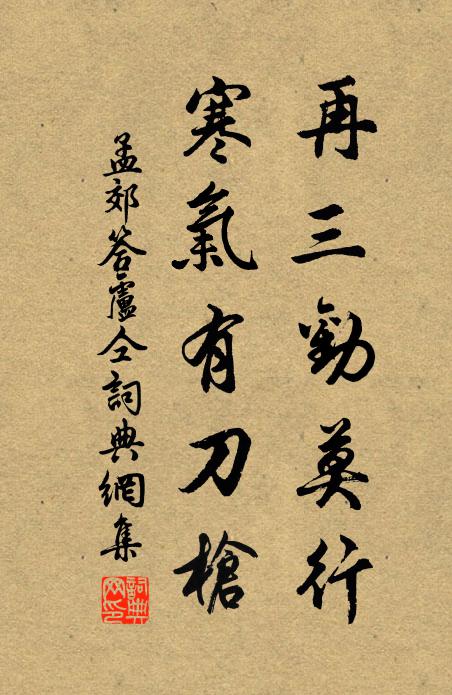 再三勸莫行
寒氣有刀槍
孟郊答盧仝詞典網集
詞典网印